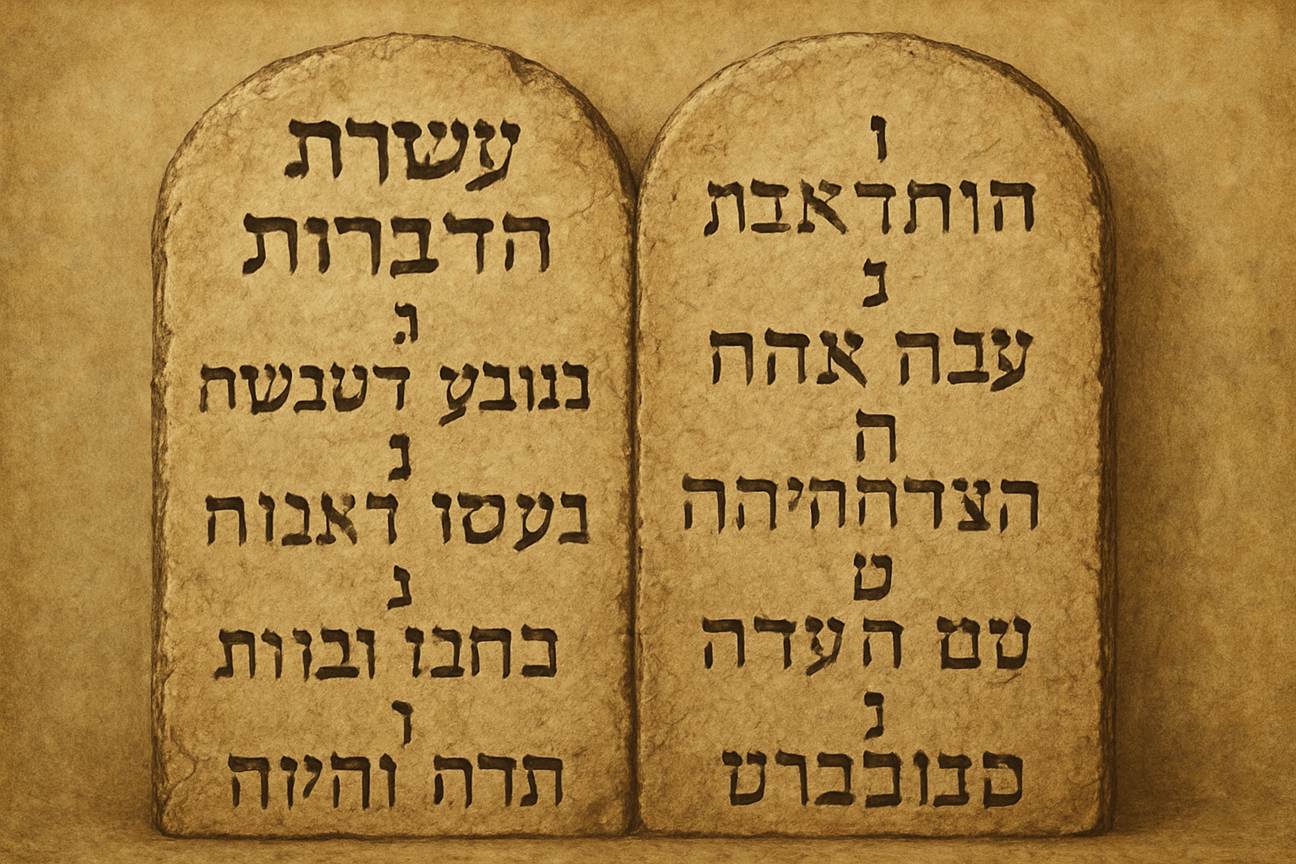 עשרת
הדברות
ג
בנובע דטבשה
נ
בעסו דאבוה
נ
בחבו ובוות
ו
תדה והיוה
ו
הותדאבת
נ
עבה אהה
ה
הצדההיהה
ט
טם העדה
נ
סבובברט